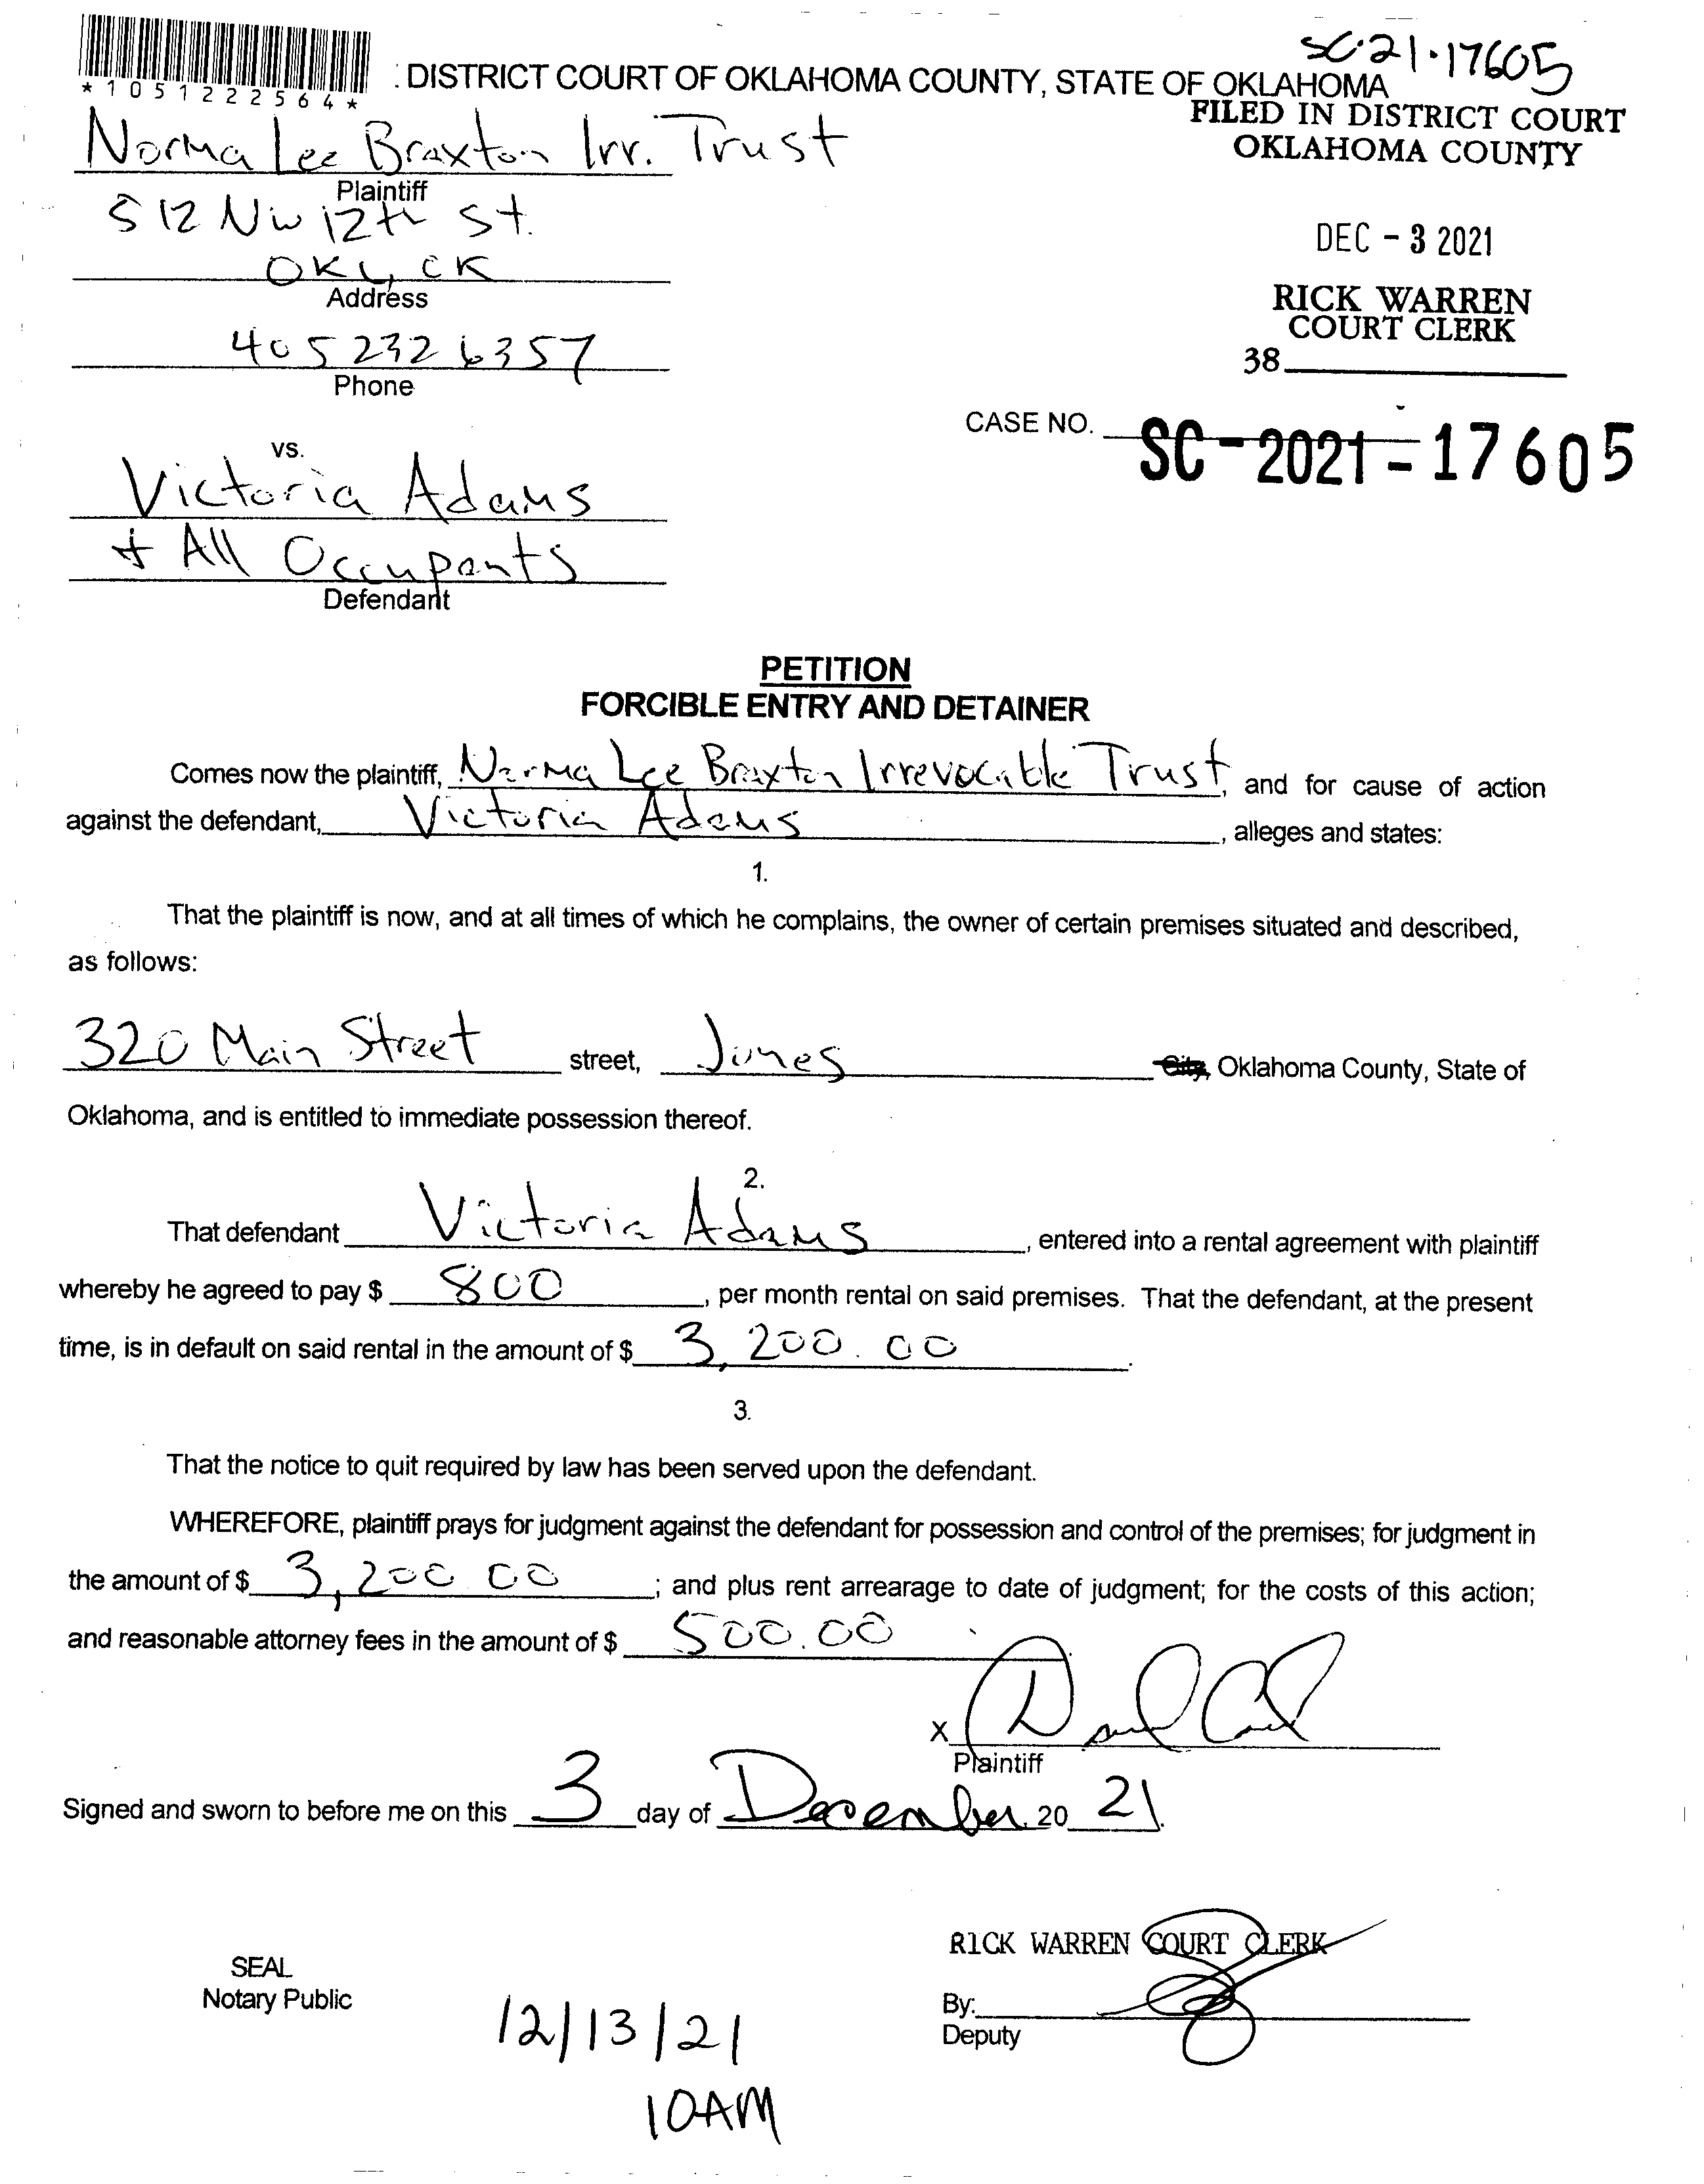 SC·21·17605
*1051222564*
. DISTRICT COURT OF OKLAHOMA COUNTY, STATE OF OKLAHOMA
FILED IN DISTRICT COURT
OKLAHOMA COUNTY
Norma Lee Braxton Irr. Trust
Plaintiff
512 NW 12th St.
OKC, OK
Address
DEC - 3 2021
RICK WARREN
COURT CLERK
38
405 232 6357
Phone
CASE NO. SC-2021-17605
vs.
Victoria Adams
+ All Occupants
Defendant
PETITION
FORCIBLE ENTRY AND DETAINER
Comes now the plaintiff, Norma Lee Braxton Irrevocable Trust, and for cause of action
against the defendant, Victoria Adams, alleges and states:
1.
That the plaintiff is now, and at all times of which he complains, the owner of certain premises situated and described,
as follows:
320 Main Street street, Jones City, Oklahoma County, State of
Oklahoma, and is entitled to immediate possession thereof.
2.
That defendant Victoria Adams, entered into a rental agreement with plaintiff
whereby he agreed to pay $ 800, per month rental on said premises. That the defendant, at the present
time, is in default on said rental in the amount of $ 3,200.00.
3.
That the notice to quit required by law has been served upon the defendant.
WHEREFORE, plaintiff prays for judgment against the defendant for possession and control of the premises; for judgment in
the amount of $ 3,200 00; and plus rent arrearage to date of judgment; for the costs of this action;
and reasonable attorney fees in the amount of $ 500.00
X
Plaintiff
Signed and sworn to before me on this 3 day of December, 20 21.
RICK WARREN COURT CLERK
SEAL
Notary Public
By:
Deputy
12/13/21
10AM